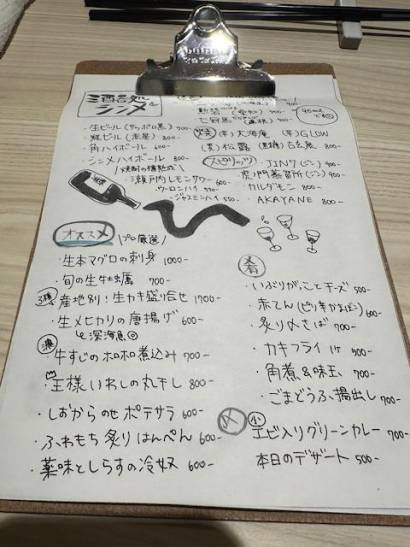 酒処
シンメ
・生ビール(サッポロ黒) 700-
・瓶ビール(赤星) 800-
・角ハイボール 600-
・シンメハイボール 800-
瀬戸内レモンサワー 600-
ウーロンハイ 550-
ジャスミンハイ 550-
700-
(芋)大海庵 (芋)GLOW
(麦)松露 (黒糖) 800-
スピリッツ
JIN7(ジン) 900-
虎ノ門蒸留所(ジン) 900-
カルダモン 800-
AKAYANE 800-
オススメ
プロ厳選
・生本マグロの刺身 1000-
・旬の生牡蠣 700-
3種 産地別!生カキ盛り合せ 1900-
・生メヒカリの唐揚げ 600-
深海魚
濃 牛すじのホロホロ煮込み 700-
・王様いわしの丸干し 800-
・しおからのせポテサラ 600-
・ふわもち炙りはんぺん 600-
・薬味としらすの冷奴 600-
肴
・いぶりがっことチーズ 500-
・赤てん(ピリ辛かまぼこ) 600-
・炙り〆さば 700-
・カキフライ 1ヶ 500-
・角煮&味玉 700-
・ごまどうふ揚出し 700-
〆
小 エビ入りグリーンカレー 700-
本日のデザート 500-